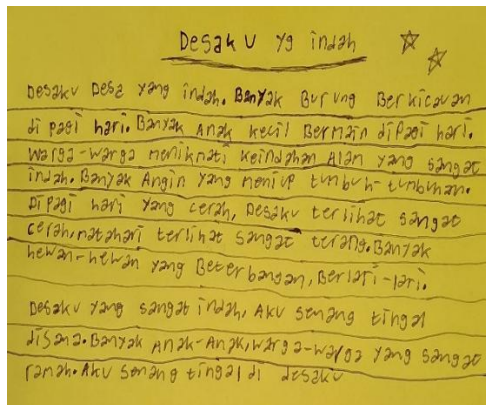 Desaku yg indah
Desaku Desa yang indah. Banyak Burung Berkicauan
di pagi hari. Banyak Anak kecil Bermain dipagi hari.
Warga-warga menikmati keindahan Alam yang sangat
indah. Banyak Angin yang meniup tumbuh-tumbuhan.
Di pagi hari yang cerah, Desaku terlihat sangat
cerah. matahari terlihat sangat terang. Banyak
hewan-hewan yang Beterbangan, Berlari-lari.
Desaku yang sangat indah, Aku senang tingal
disana. Banyak Anak-Anak, warga-warga yang sangat
ramah. Aku senang tingal di desaku